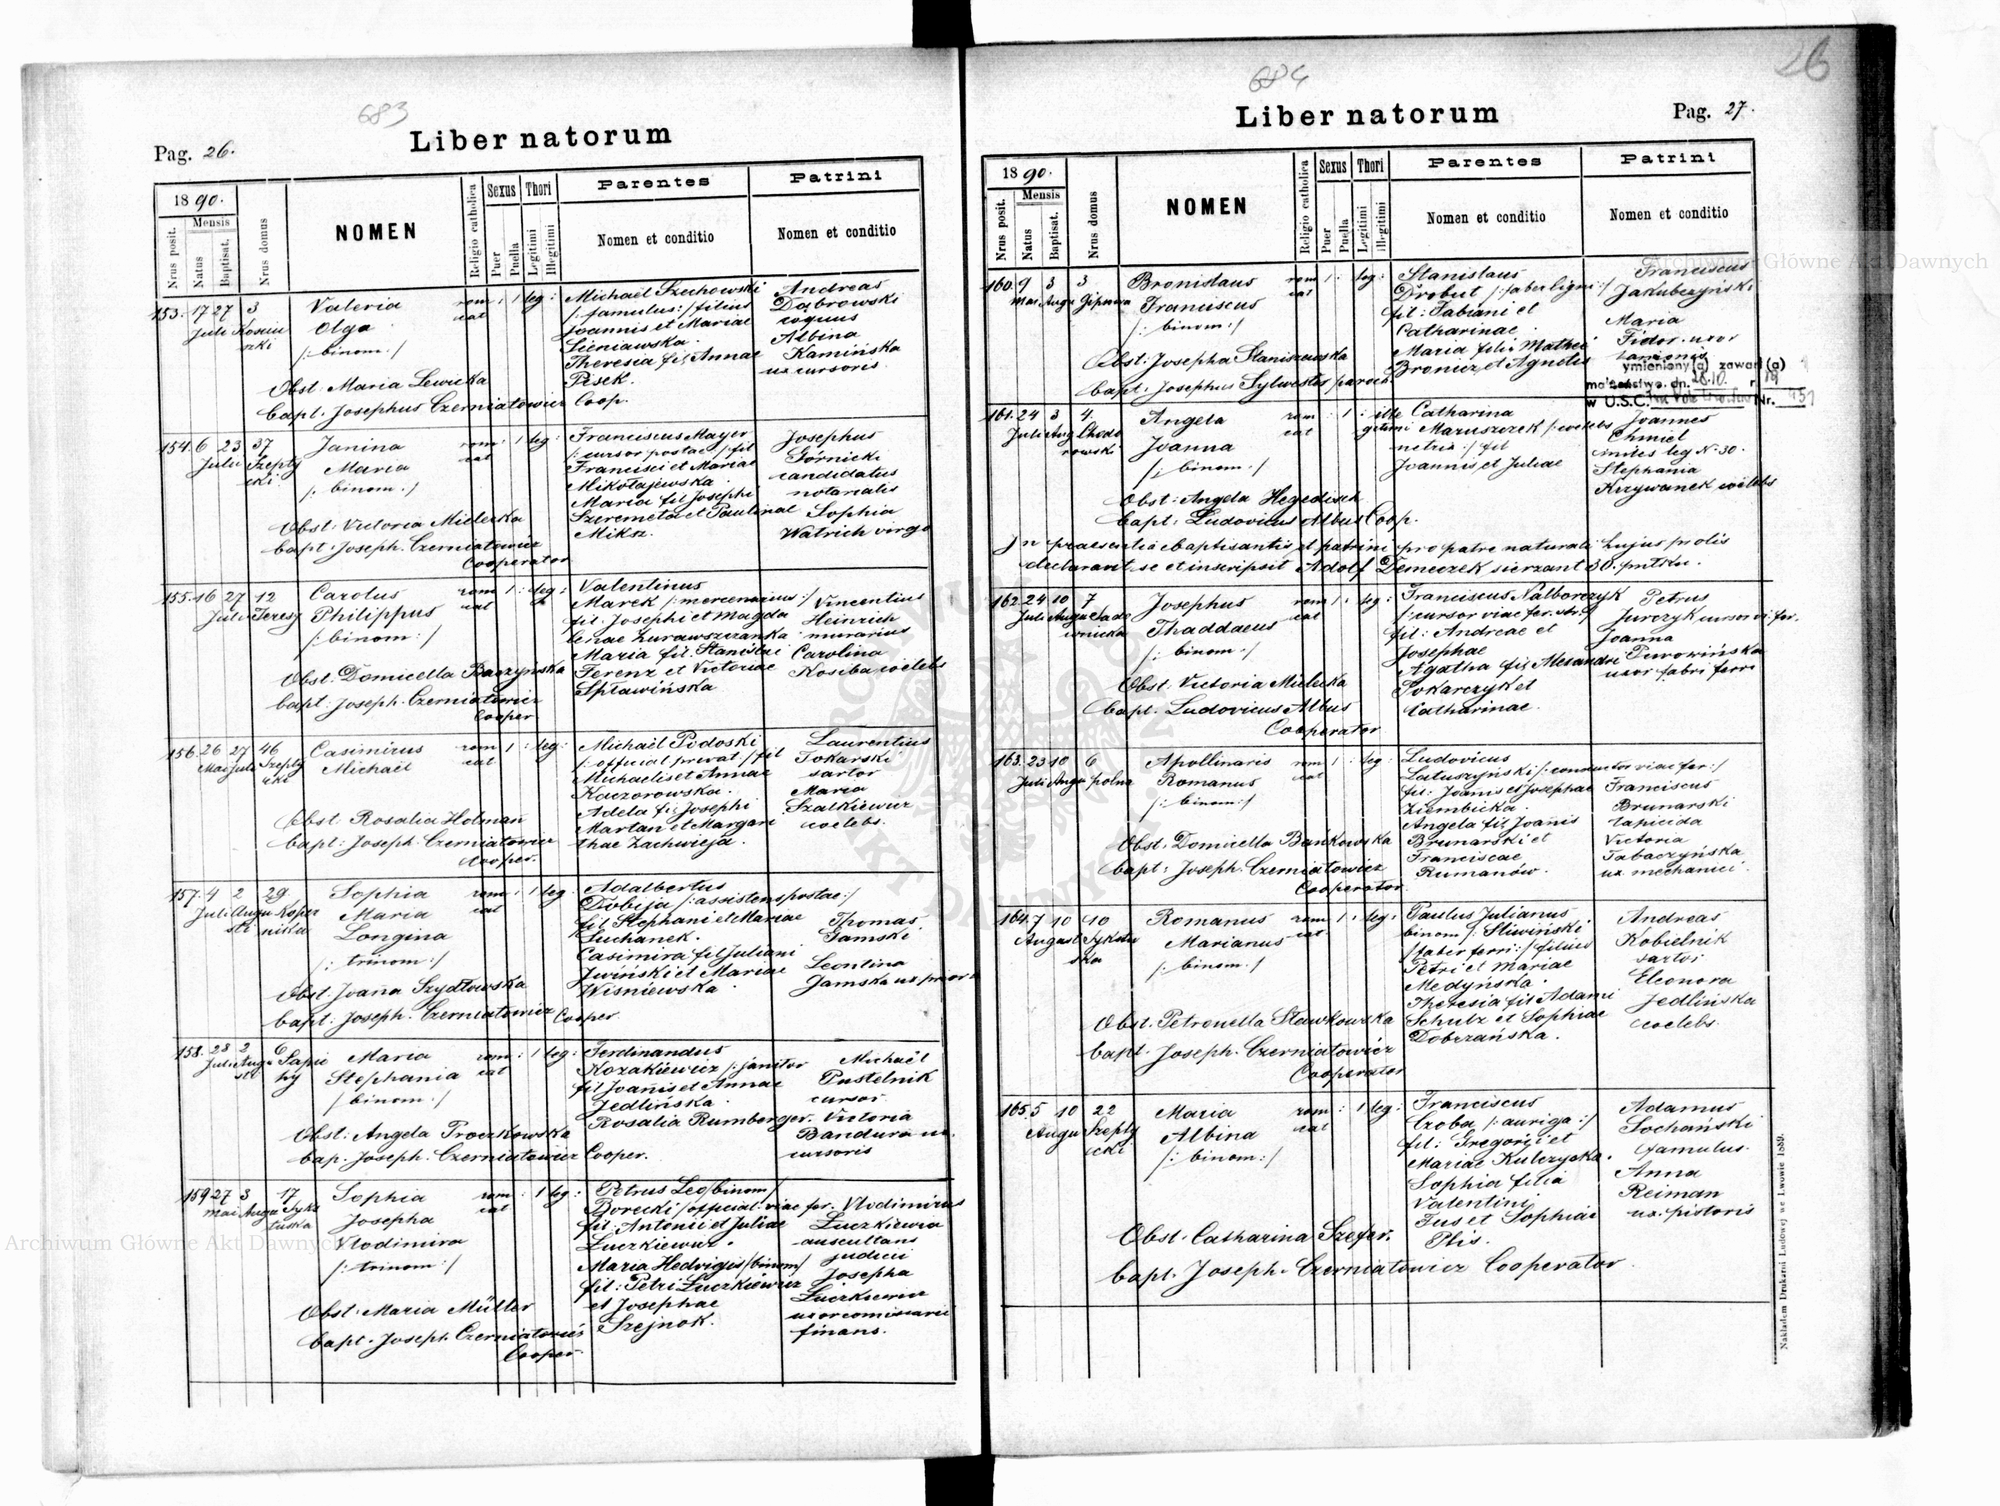 683
Liber natorum
Pag. 26.
1890.
Mensis
Nrus posit.
Natus
Baptisat.
Nrus domus
NOMEN
Religio catholica
Sexus
Puer
Puella
Thori
Legitimi
Illegitimi
Parentes
Nomen et conditio
Patrini
Nomen et conditio
153. 17 27 3 Valeria rom : 1 leg: Michaël Szechowski Andreas
Juli Olga cat /: famulus :/ filius Dąbrowski
/: binom :/ Joannis et Mariae coquus
Sieniawska. Albina
Theresia fil Annae Kamińska
Obst. Maria Lewicka Pisek. ux cursoris.
bapt. Josephus Czerniatowicz Coop.
154. 6 23 37 Janina rom : 1 leg: Franciscus Mayer Josephus
Juli Szepty Maria cat /: cursor postae :/ fil Górnicki
cki /: binom :/ Francisci et Mariae candidatus
Mikołajewska. notarialis
Maria fil Josephi Sophia
Obst: Victoria Mielecka Szeremeta et Paulinae Watrich virgo
bapt: Joseph. Czerniatowicz Miksz.
Cooperator
155. 16 27 12 Carolus rom 1 : leg: Valentinus
Juli Teresy Philippus cat Marek /: mercenarius :/ Vincentius
/: binom :/ fil. Josephi et Magda Heinrich
lenae Żurawszczanska murarius
Maria fil. Stanislai Carolina
Obst. Domicella Baczynska Ferenz et Victoriae Koseba coelebs
bapt: Joseph. Czerniatowicz Spławińska
Cooper
156. 26 27 46 Casimirus rom 1 : leg: Michaël Podoski Laurentius
Mai Juli Szepty Michaël cat /: official privat :/ fil Tokarski
cki Michaelis et Annae sartor
Kaczorowska. Maria
Obst. Rosalia Holman Adela fil. Josephi Szalkiewicz
bapt: Joseph. Czerniatowicz Martan et Marga coelebs.
Cooper. thae Zachwieja.
157. 4 2 29. Sophia rom : 1 leg: Adalbertus
Juli Augu Koper Maria cat Dobija /: assistens postae :/
sti nika Longina fil Stephani et Mariae Thomas
/: trinom :/ Suchanek. Jamski
Casimira fil Juliani
Obst. Joana Szydłowska et Mariae Leontina
bapt. Joseph. Czerniatowicz Cooper Wisniewska.
158. 28 2 6 Maria rom : 1 leg: Ferdinandus Michaël
Juli Augu Sapie Stephania cat Kozakiewicz /: janitor Pustelnik
sti hy /: binom :/ fil Joanis et Annae cursor
Jedlińska. Victoria
Obst: Angela Troczkowska Rosalia Rumberger. Bandura ux.
bap. Joseph. Czerniatowicz Cooper. cursoris
159 27 3 17 Sophia rom : 1 leg: Petrus Leo /binom/
Mai Augu Syks Josepha cat Borecki /official. viae fer. Vlodimirus
tuska Vlodimira fil. Antonii et Juliae Łuczkiewicz
/: trinom :/ Łuczkiewicz. auscultans
Maria Hedvigis /binom/ judici
fil: Petri Łuczkiewicz Josepha
Obst. Maria Müller et Josephae Łuczkiewicz
bapt. Joseph. Czerniatowicz Szejnok. uxor comissarii
Cooper finans.
684
26
Liber natorum
Pag. 27.
1890.
Mensis
Nrus posit.
Natus
Baptisat.
Nrus domus
NOMEN
Religio catholica
Sexus
Puer
Puella
Thori
Legitimi
illegitimi
Parentes
Nomen et conditio
Patrini
Nomen et conditio
160. 9 3 3 Bronislaus rom 1 : leg: Stanislaus Franciscus
Mai Augu Franciscus cat Drobut /: faber lign :/ Jakubczyński
/: binom :/ fil: Fabiani et Maria
Catharinae.
Obst: Josepha Staniszewska Maria filia Mathei
bapt. Josephus Sylwester paroch. Bronicz et Agnetis
ymieniony (a) zawarł (a)
małżeństwo dn. 28.10. r.
w U.S.C. Nr. 451
161. 24 3 4. Angela rom : 1 : ille Catharina Joannes
Juli Aug Chodo Joanna cat gitimi Maruszczek /: coelebs Chmiel
rowski /: binom :/ miles leg N. 30.
Joannis et Juliae Stephania
Obst: Angela Hegedisch Krzywanek coelebs
bapt: Ludovicus Albus Coop.
In praesentia baptisantis et patrini pro patre naturali hujus prolis
declaravit se et inscripsit Adolf Demeczek sierzant 30. pułku.
162. 24 10 7 Josephus rom 1 : leg: Franciscus Nalborczyk Petrus
Juli Augu Sado Thaddaeus cat /: cursor viae fer. Jurczyk cursor vi. fer.
wnicka /: binom :/ fil: Andreae et Joanna
Josephae Turowińska
Obst. Victoria Mielecka Agatha fil. Alexandri uxor fabri ferri
bapt. Ludovicus Albus Tokarczyk et
Cooperator Catharinae.
163. 23 10 6 Apollinaris rom 1 : leg: Ludovicus
Juli Augu polna Romanus cat Latuszyński /: conductor viae fer :/
/: binom :/ fil: Joanis et Josephae Franciscus
Ziembicka. Brunarski
Angela fil Joanis lapicida
Obst. Domicella Bańkowska Brunarski et Victoria
bapt: Joseph. Czerniatowicz Franciscae Tabaczyńska
Cooperator Rumanów. ux. mechanici.
164. 7 10 40 Romanus rom 1 : leg: Paulus Julianus Andreas
August Sykstu Marianus cat binom /: Śliwiński Kobielnik
ska /: binom :/ /faber ferri :/ filius sartor
Petri et Mariae Eleonora
Medyńska. Jedlińska
Theresia fil Adami coelebs.
Obst. Petronella Sławkowska Schulz et Sophiae
bapt. Joseph. Czerniatowicz Dobrzańska.
Cooperator
165. 5 10 22 Maria rom : 1 leg: Franciscus Adamus
Augu Szepty Albina cat Czoba /: auriga :/ Sochański
cki /: binom :/ fil: Gregorii et famulus.
Mariae Kulczycka. Anna
Sophia filia Reiman
Valentini ux. pistoris
Obst. Catharina Szefer. Fus et Sophiae
Plis.
bapt. Joseph. Czerniatowicz Cooperator.
Nakładem Drukarni Ludowej we Lwowie 1889.
Archiwum Główne Akt Dawnych
Archiwum Główne Akt Dawnych